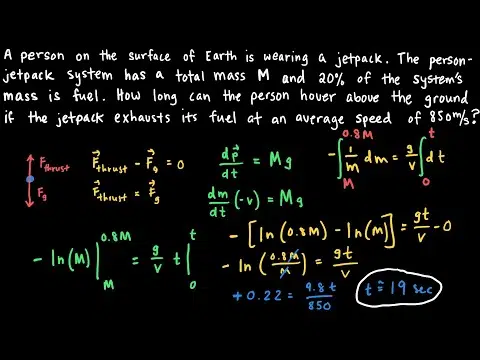 A person on the surface of Earth is wearing a jetpack. The person-
jetpack system has a total mass M and 20% of the system's
mass is fuel. How long can the person hover above the ground
if the jetpack exhausts its fuel at an average speed of 850m/s?
F thrust
Fg
F⃗thrust - F⃗g = 0
F⃗thrust = F⃗g
dp⃗/dt = Mg
dm/dt (-v) = Mg
-∫_M^0.8M 1/m dm = g/v ∫_0^t dt
- ln(M) |_M^0.8M = g/v t |_0^t
- [ln(0.8M) - ln(M)] = gt/v - 0
- ln(0.8M/M) = gt/v
+0.22 = 9.8t/850
t ≈ 19 sec